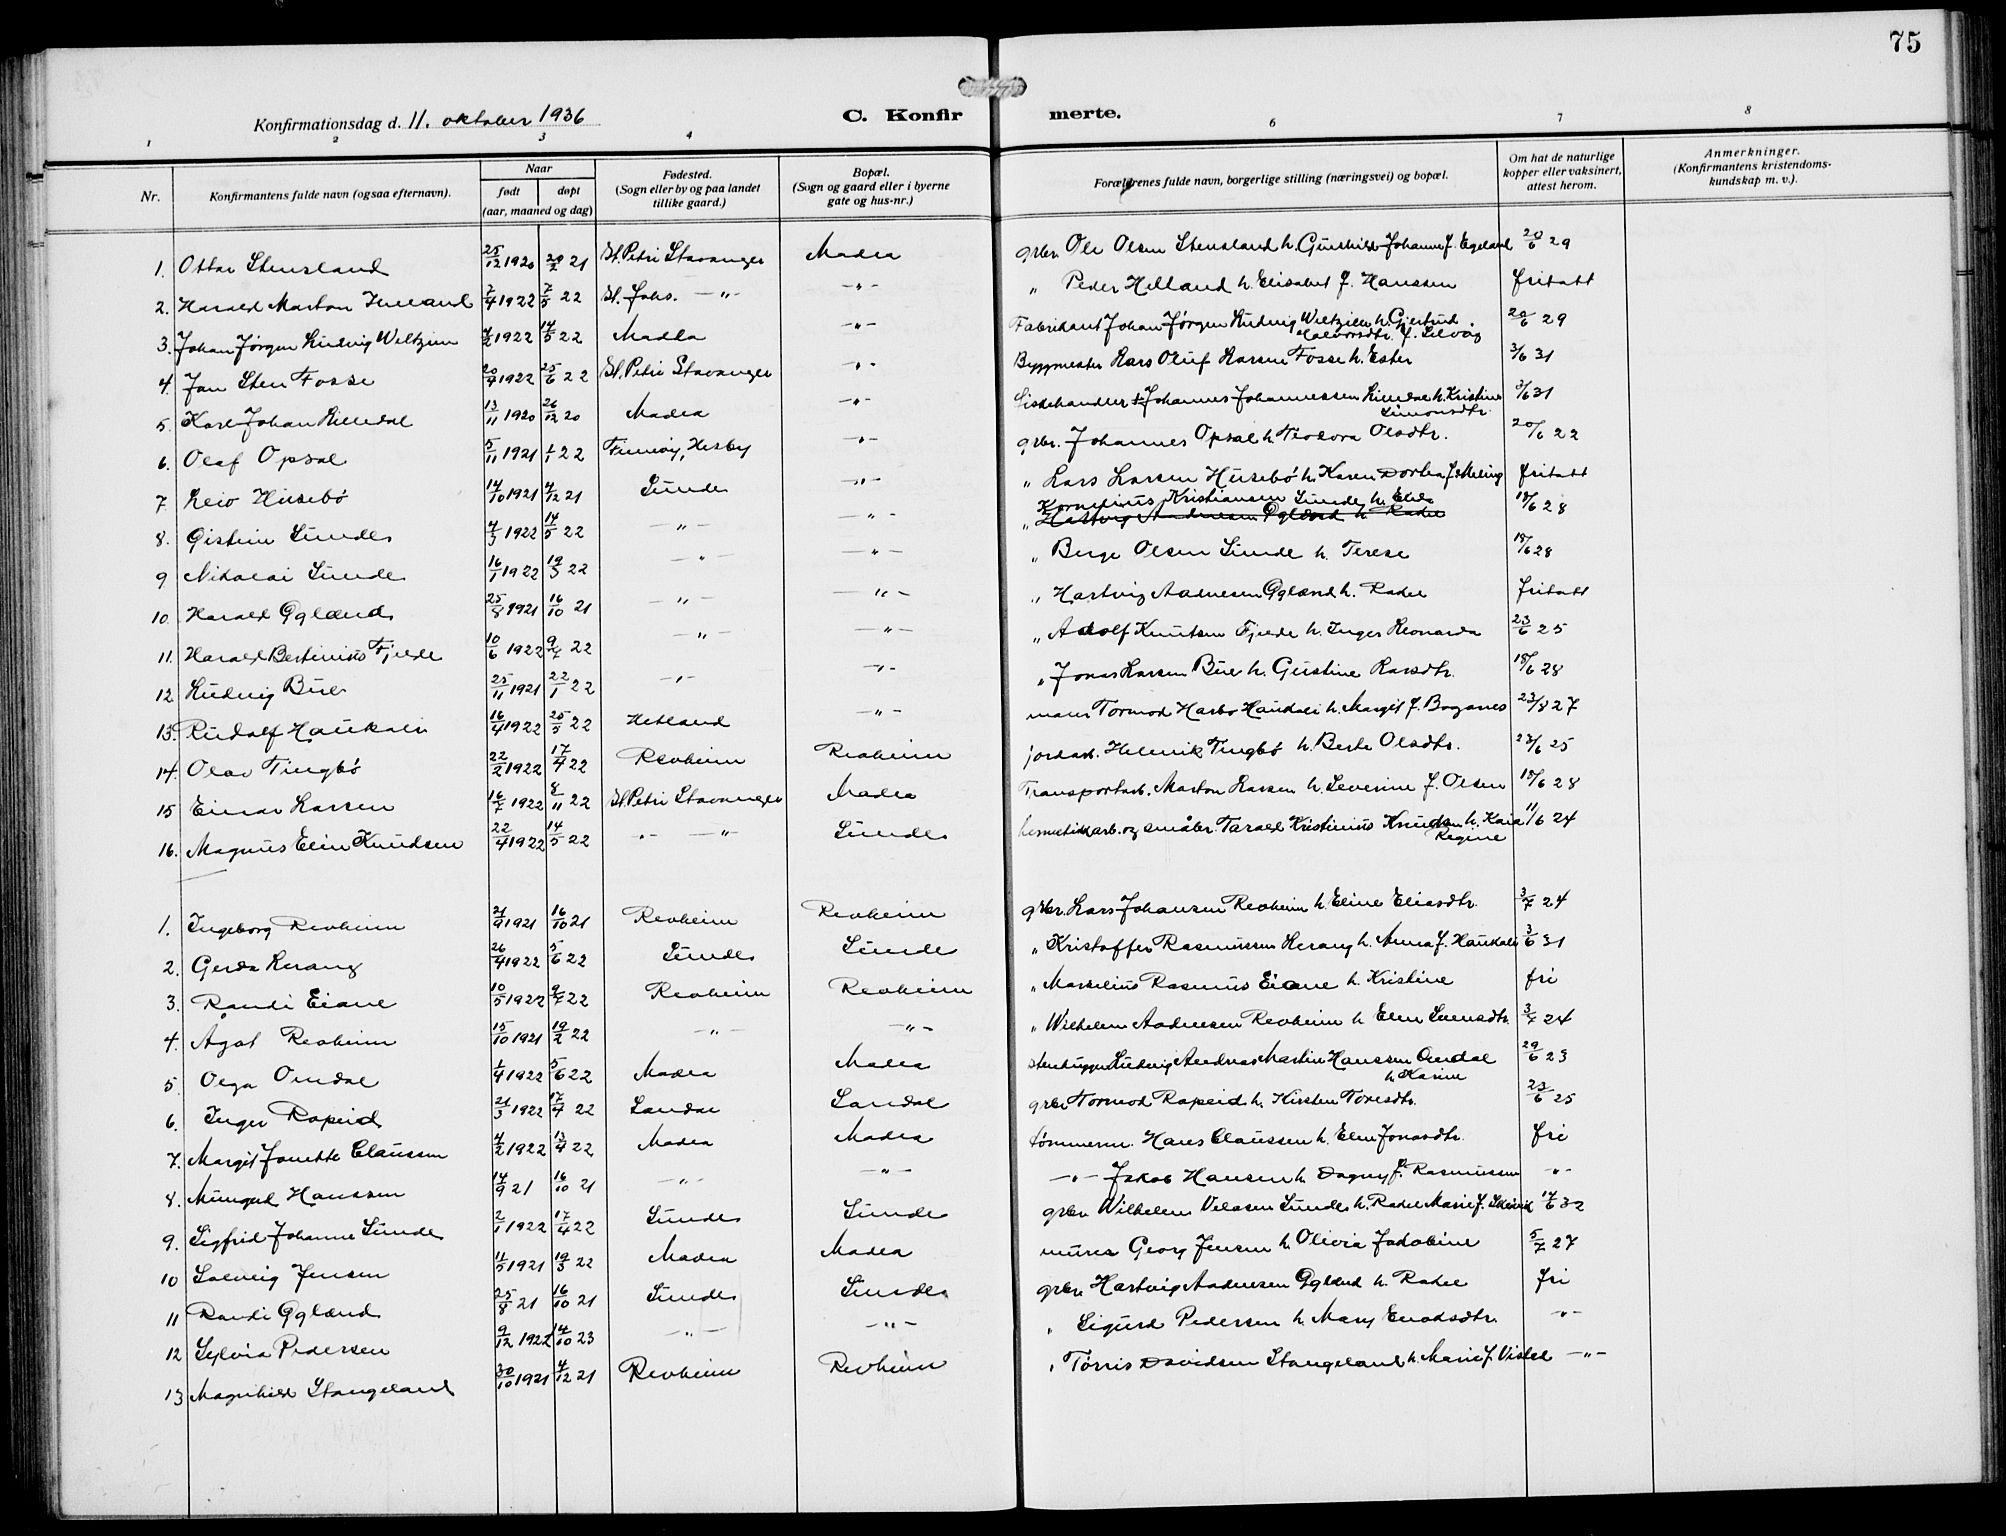 75
Konfirmationsdag d. 11. oktober 1936 C. Konfirmerte.
1 2 3 4 6 7 8
Nr. Konfirmantens fulde navn (ogsaa efternavn). Naar født døpt (aar, maaned og dag) Fødested. (Sogn eller by og paa landet tillike gaard.) Bopæl. (Sogn og gaard eller i byerne gate og hus-nr.) Forældrenes fulde navn, borgerlige stilling (næringsvei) og bopæl. Om hat de naturlige kopper eller vaksinert, attest herom. Anmerkninger. (Konfirmantens kristendoms-kundskap m. v.).
1. Ottar Stensland 25/12 1920 20/2 21 St. Petri Stavanger Madla grbr. Ole Olsen Stensland h. Gunhild Johanne f. Egeland 20/6 29
2. Harald Marton Helland 7/4 1922 7/5 22 St. Johs. -"- -"- " Peder Helland h. Elisabet f. Hanssen fritatt
3. Johan Jørgen Ludvig Weltzien 4/2 1922 14/5 22 Madla -"- Fabrikant Johan Jørgen Ludvig Weltzien h. Gjertrud Halvorsdtr. f. Selvåg 20/6 29
4. Jan Sten Fosse 20/4 1922 25/6 22 St. Petri Stavanger -"- Byggmester Lars Oluf Larsen Fosse h. Ester 3/6 31
5. Karl Johan Liendal 13/11 1920 26/12 20 Madla -"- Fiskehandler Johannes Johannessen Liendal h. Kristine Simonsdtr. 3/6 31
6. Olaf Opsal 5/11 1921 1/1 22 Finnøy, Hesby -"- grbr. Johannes Opsal h. Teodora Olsdtr. 20/6 22
7. Leiv Husebø 14/10 1921 4/12 21 Sunde -"- " Lars Larsen Husebø h. Karen Dortea f. Meling fritatt
8. Gistein Sunde 4/3 1922 14/5 22 -"- -"- " Kornelius Kristiansen Sunde h. Else 18/6 28
Hartvig Aadnesen Ggland h. Rakel
9 Nikolai Sunde 16/1 1922 19/3 22 -"- -"- " Berge Olsen Sunde h. Terese 18/6 28
10. Harald Ggland 25/8 1921 16/10 21 -"- -"- " Hartvig Aadnesen Ggland h. Rakel fritatt
11. Harald Bertinius Fjelde 10/6 1922 9/7 22 -"- -"- " Adolf Knutsen Fjelde h. Inger Leonarda 23/6 25
12 Ludvig Bue 25/11 1921 22/1 22 -"- -"- " Jonas Larsen Bue h. Gustine Larsdtr. 18/6 28
13. Rudolf Haukali 16/4 1922 25/5 22 Hetland -"- maler Tormod Harbo Haukali h. Margit f. Boganes 23/8 27
14. Olav Tingbø 22/2 1922 17/4 22 Revheim Revheim jordarb. Helmik Tingbø h. Berte Olsdtr. 23/6 25
15 Einar Larsen 16/7 1922 8/11 22 St. Petri Stavanger Madla Transportarb. Marton Larsen h. Severine f. Olsen 18/6 28
16. Magnus Elin Knudsen 22/4 1922 14/5 22 -"- -"- Sunde hermetikkarb. og småbr. Tarald Kristinius Knudsen h. Kaia Regine 11/6 24
1. Ingeborg Revheim 21/9 1921 16/10 21 Revheim Revheim grbr. Lars Johansen Revheim h. Eline Eliasdtr. 3/7 24
2. Gerda Lerang 26/4 1922 5/6 22 Sunde Sunde " Kristoffer Rasmussen Lerang h. Anna f. Haukali 3/6 31
3. Randi Eiane 10/5 1922 9/7 22 Revheim Revheim " Marselius Rasmus Eiane h. Kristine fri
4. Agot Revheim 15/10 1921 19/2 22 -"- -"- " Wilhelm Aadnesen Revheim h. Elen Svensdtr. 3/7 24
5. Olga Omdal 1/4 1922 5/6 22 Madla Madla stenhugger Ludvig Andreas Martin Hanssen Omdal h. Karine 29/6 23
6. Inger Rapeid 21/3 1922 17/4 22 Sandal Sandal grbr Tormod Rapeid h. Kirsten Toresdtr. 23/6 25
7. Margit Jonette Claussen 4/2 1922 13/4 22 Madla Madla tømmerm. Hans Claussen h. Elen Jonasdtr. fri
8. Hanssen 14/9 21 16/10 21 -"- -"- -"- Jakob Hansen h. Dagny f. Rasmussen -"-
9. Sigfrid Johanne Sunde 2/1 1922 17/4 22 Sunde Sunde grbr. Wilhelm Velasen Sunde h. Rakel Marie f. 17/6 32
10 Solveig Jensen 11/5 1921 19/3 22 Madla Madla murer Georg Jensen h. Olivia Jakobine 5/7 27
11 Randi Ggland 25/8 21 16/10 21 Sunde Sunde grbr. Hartvig Aadnesen Ggland h. Rakel fri
12 Sylvia Pedersen 9/12 1922 14/10 23 -"- -"- " Sigurd Pedersen h. Mary Enoksdtr. -"-
13 Magnhild Stangeland 30/10 1921 4/12 21 Revheim Revheim " Tørris Davidsen Stangeland h. Marie f. Viste -"-